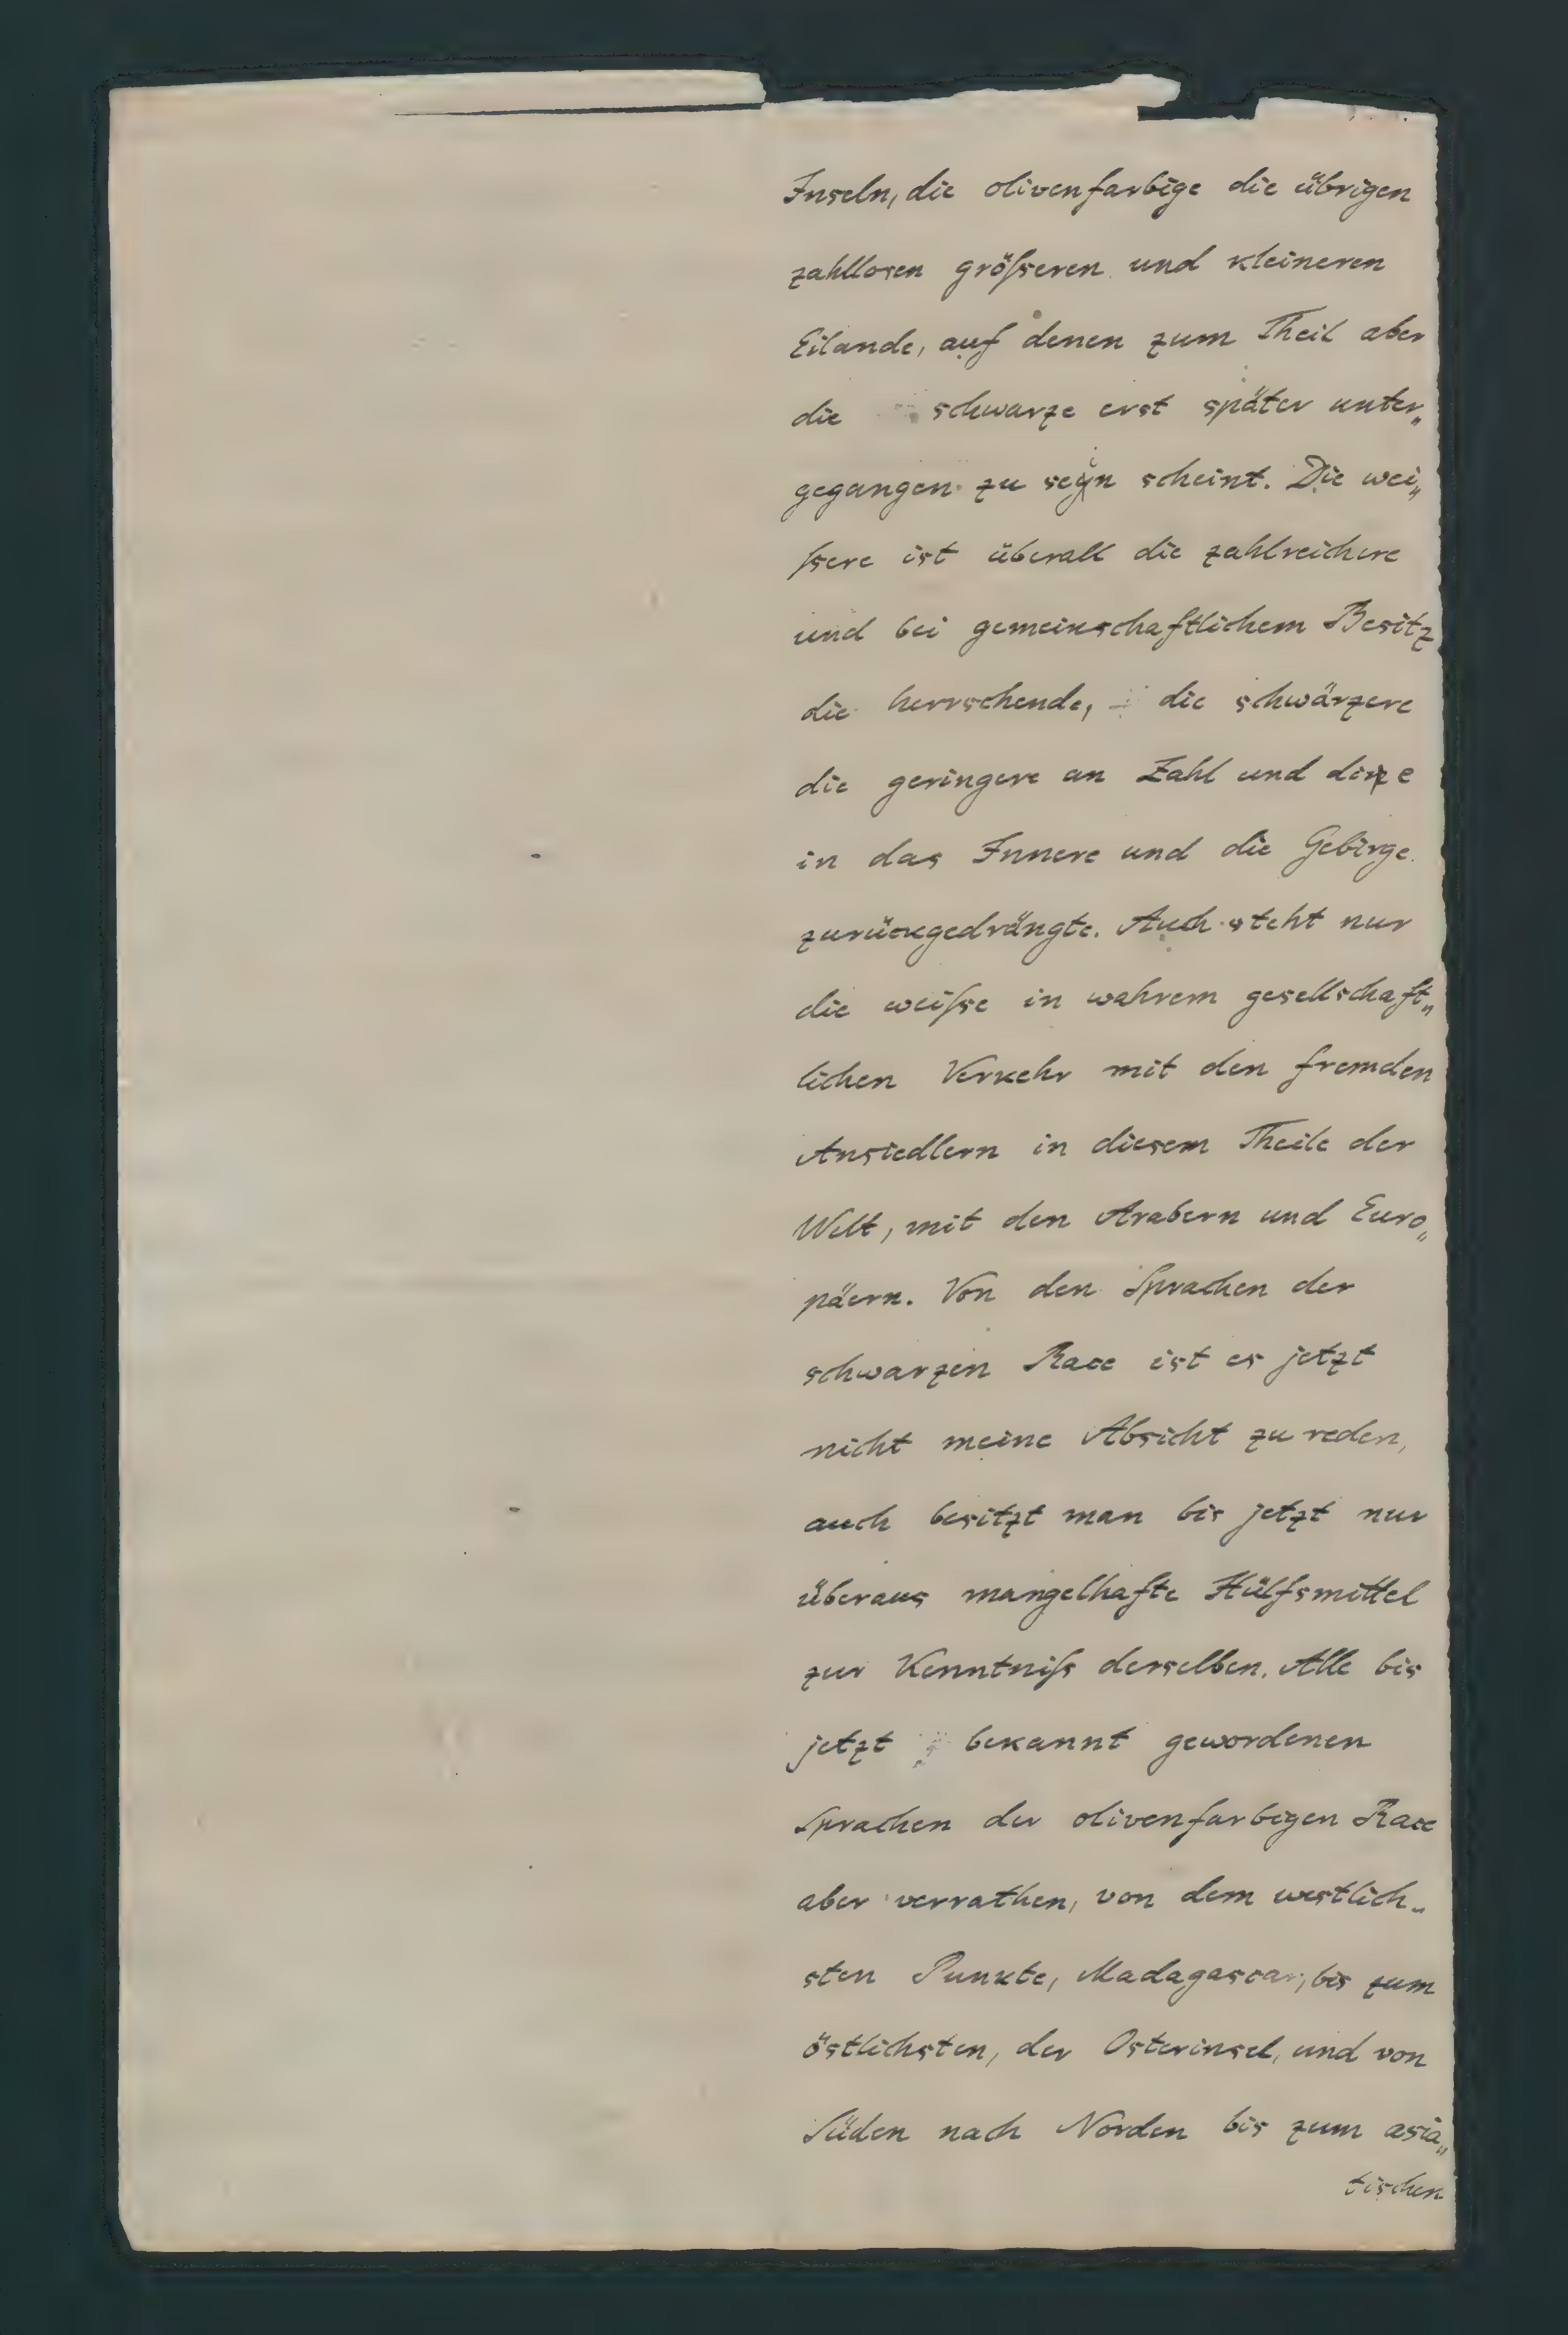 Inseln, die olivenfarbige die übrigen
zahllosen größeren und kleineren
Eilande, auf denen zum Theil aber
die schwarze erst später unter„
gegangen zu seyn scheint. Die wei„
ßere ist überall die zahlreichere
und bei gemeinschaftlichem Besitz
die herrschende, die schwärzere
die geringere an Zahl und die
in das Innere und die Gebirge
zurückgedrängte. Auch steht nur
die weiße in wahrem gesellschaft„
lichen Verkehr mit den fremden
Ansiedlern in diesem Theile der
Welt, mit den Arabern und Euro„
päern. Von den Sprachen der
schwarzen Race ist es jetzt
nicht meine Absicht zu reden,
auch besitzt man bis jetzt nur
überaus mangelhafte Hülfsmittel
zur Kenntniß derselben. Alle bis
jetzt bekannt gewordenen
Sprachen der olivenfarbigen Race
aber verrathen, von dem westlich„
sten Punkte, Madagascar, bis zum
östlichsten, der Osterinsel, und von
Süden nach Norden bis zum asia„
tischen